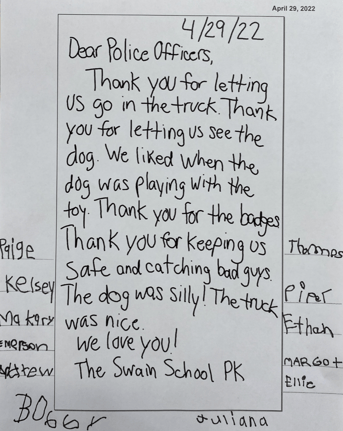 April 29, 2022
4/29/22
Dear Police Officers,
Thank you for letting
us go in the truck. Thank
you for letting us see the
dog. We liked when the
dog was playing with the
toy. Thank you for the badges
Thank you for keeping us
safe and catching bad guys.
The dog was silly! The truck
was nice.
We love you!
The Swain School PK
Paige
Kelsey
Emerson
Thomas
Piper
Ethan
MARGOT
Ellie
Juliana